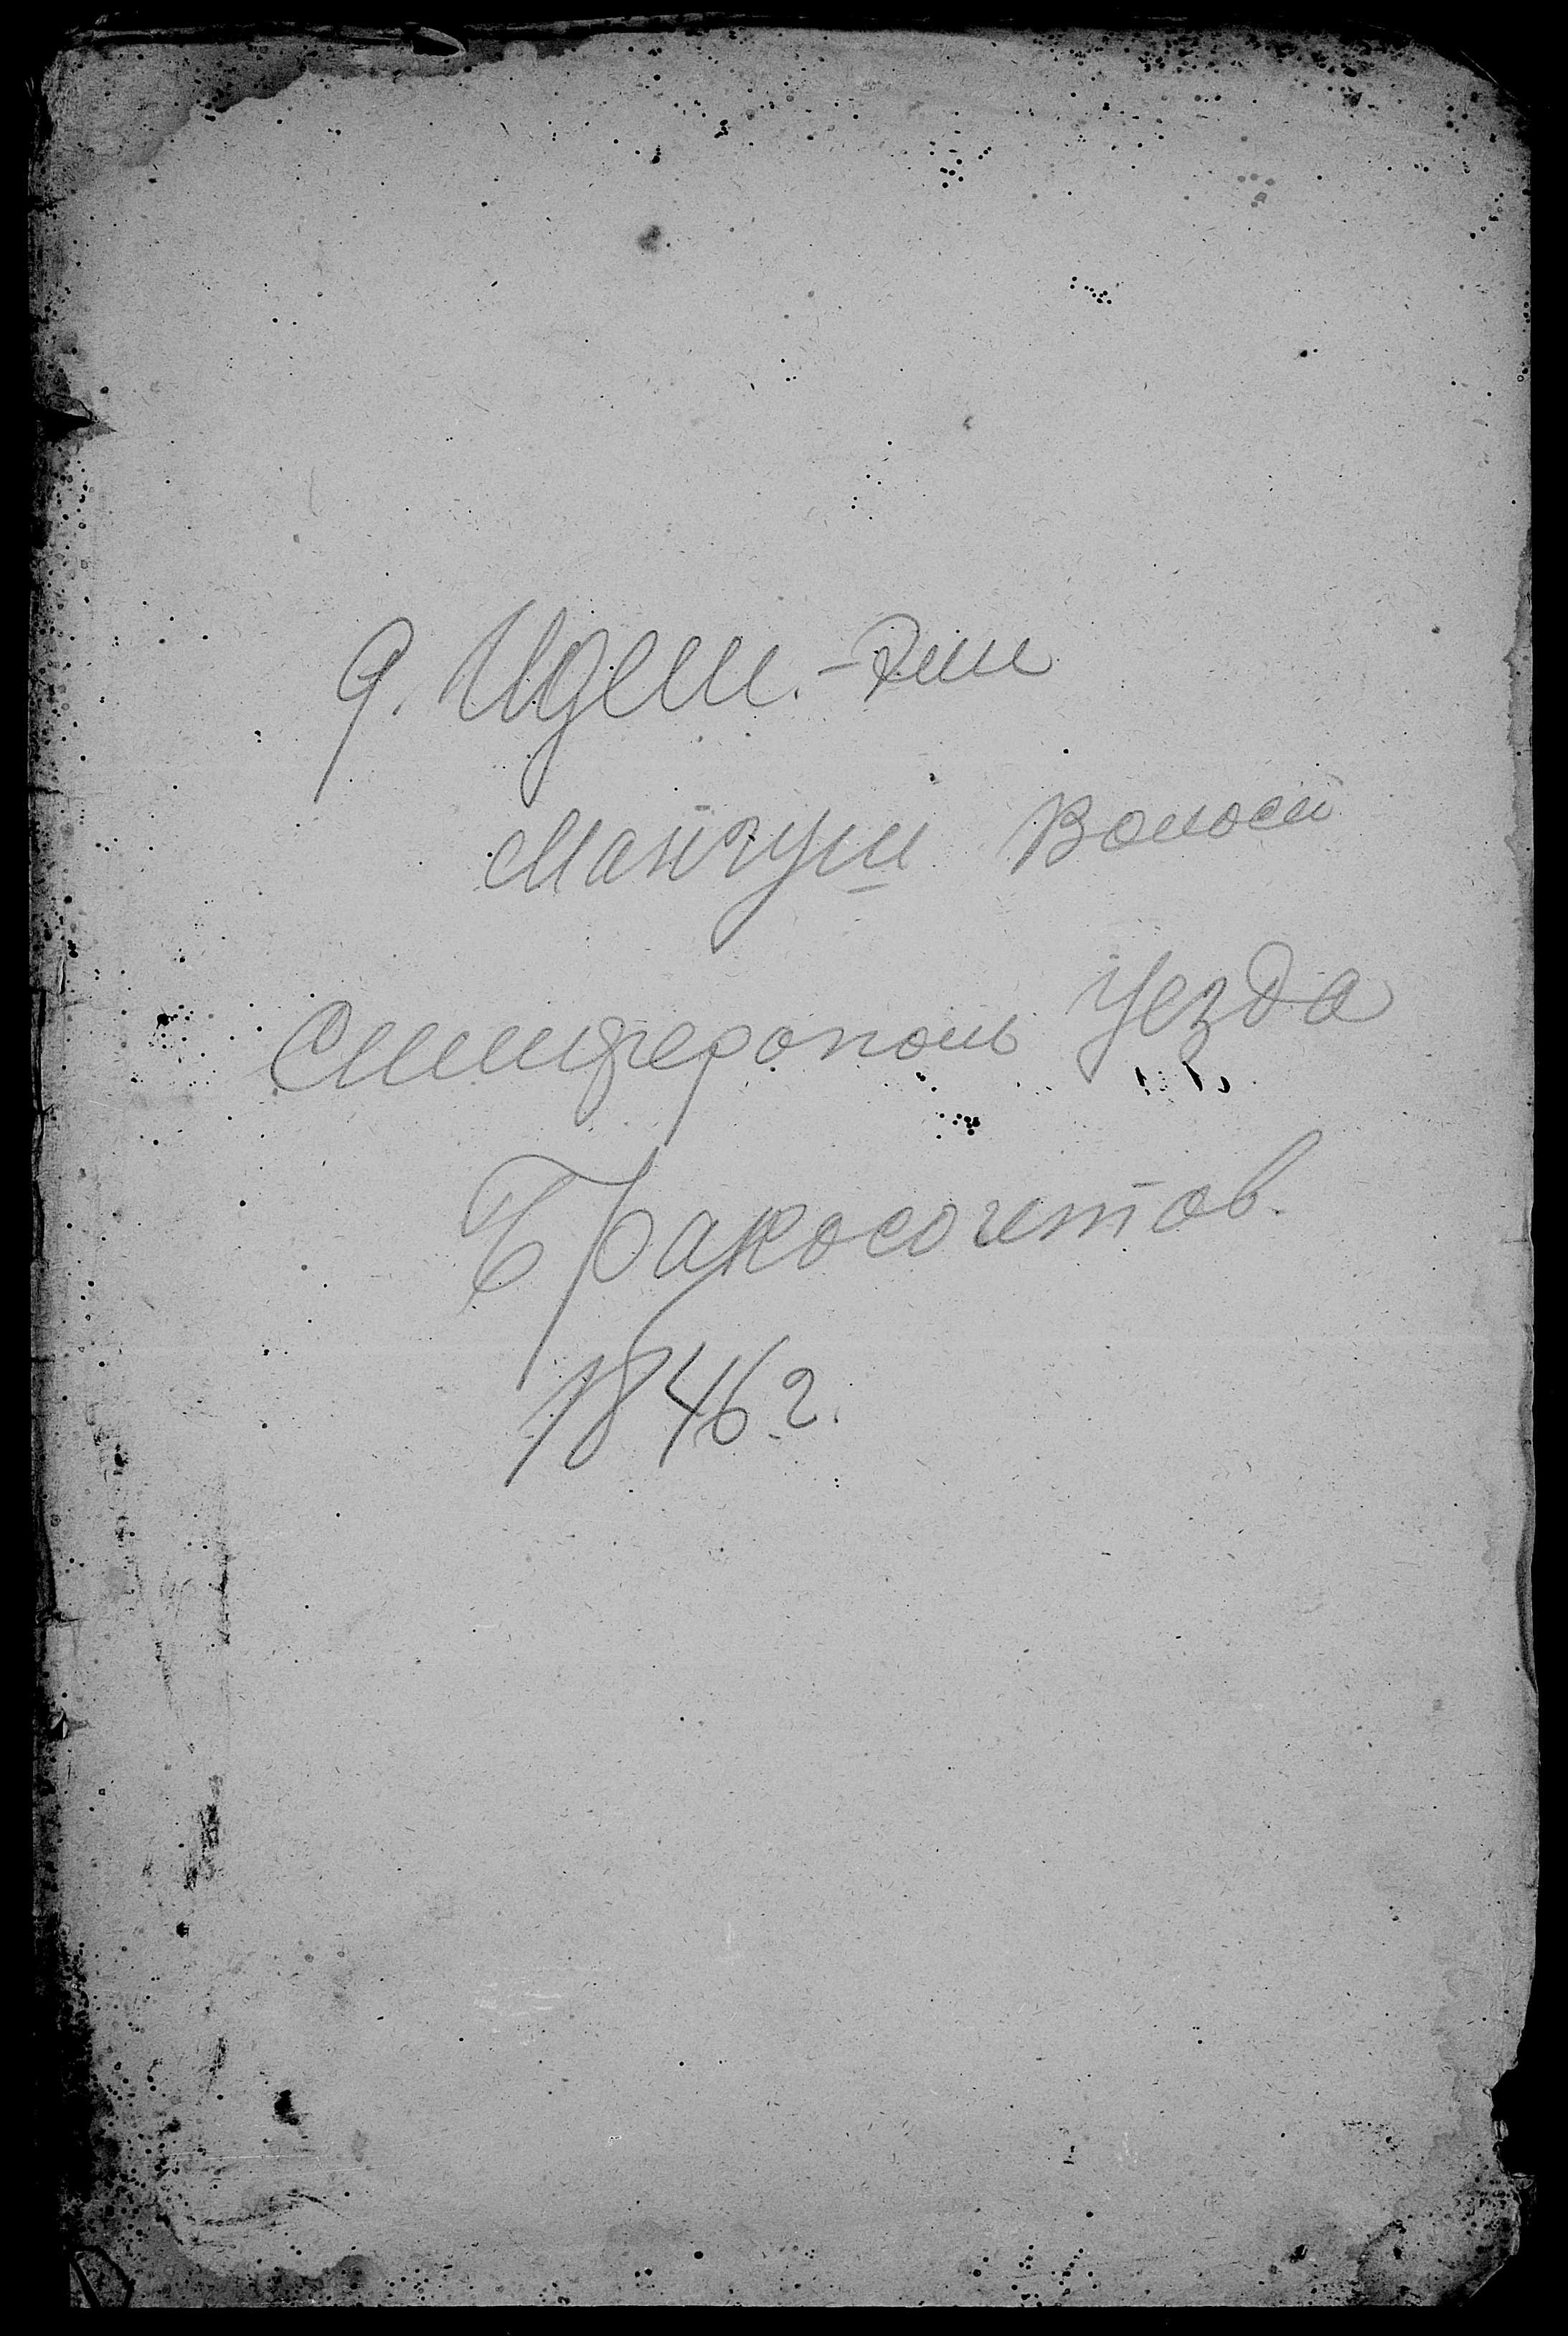 д. Идеш.-Эли
Мангуш Волости
Симферополь Уезда
Бракосочетов.
1846 г.